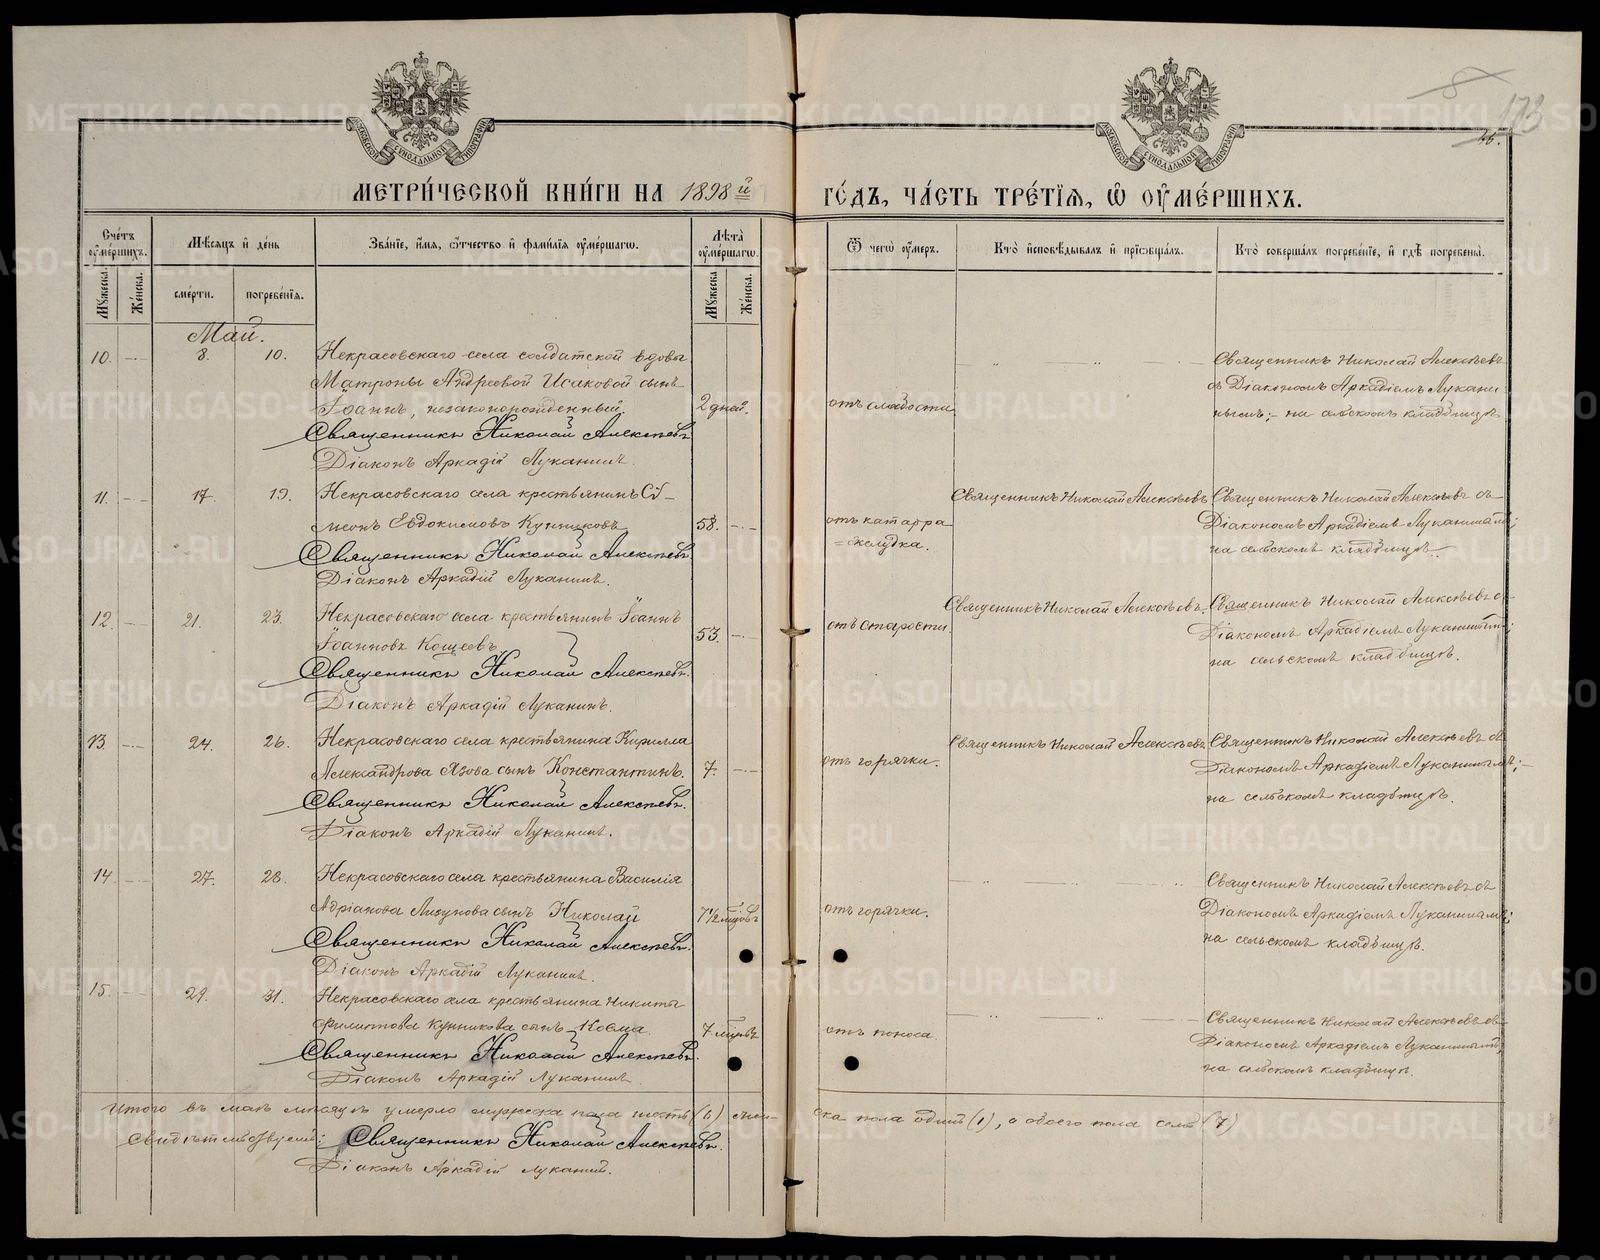 173
МЕТРИ́ЧЕСКОЙ КНИ́ГИ НА 1898й ГО́ДЪ, ЧА́СТЬ ТРЕ́ТІЯ, Ѡ ОУМЕ́РШИХЪ.
Сче́тъ оуме́ршихъ.
Мꙋжеска.
Же́нска.
Мѣсяцъ и де́нь
сме́рти.
погребе́нія.
Зва́ніе, и́мя, ѻ́тчество и фами́лія оуме́ршагѡ.
Лѣта̀ оуме́ршагѡ.
Мꙋжеска
Же́нска.
Ѿ чегѡ̀ оу́меръ.
Кто̀ исповѣдывалъ и пріѡбща́лъ.
Кто̀ соверша́лъ погребе́ніе, и гдѣ̀ погребены̀.
Май.
10. 8. 10. Некрасовскаго села солдатской вдовы
Матроны Андреевой Исаковой сынъ
Іоаннъ, незаконорожденный. 2 дней.
Священникъ Николай Алексѣевъ
Діаконъ Аркадій Луканинъ.
отъ слабости
Священникъ Николай Алексѣевъ
съ Діакономъ Аркадіемъ Лукани
нымъ; на сельскомъ кладбищѣ
11. 17. 19. Некрасовскаго села крестьянинъ Си-
меонъ Евдокимовъ Кунниковъ 58.
Священникъ Николай Алексѣевъ
Діаконъ Аркадій Луканинъ.
отъ катарра
желудка.
Священникъ Николай Алексѣевъ
Священникъ Николай Алексѣевъ съ
Діакономъ Аркадіемъ Луканинымъ;
на сельскомъ кладбищѣ.
12. 21. 23. Некрасовскаго села крестьянинъ Іоаннъ
Іоанновъ Кощеевъ 53.
Священникъ Николай Алексѣевъ.
Діаконъ Аркадій Луканинъ.
отъ старости.
Священникъ Николай Алексѣевъ.
Священникъ Николай Алексѣевъ съ
Діакономъ Аркадіемъ Луканинымъ;
на сельскомъ кладбищѣ.
13. 24. 26. Некрасовскаго села крестьянина Кирилла
Александрова Язова сынъ Константинъ. 7.
Священникъ Николай Алексѣевъ.
Діаконъ Аркадій Луканинъ.
отъ горячки.
Священникъ Николай Алексѣевъ
Священникъ Николай Алексѣевъ съ
Діакономъ Аркадіемъ Луканинымъ;
на сельскомъ кладбищѣ.
14. 27. 28. Некрасовскаго села крестьянина Василія
Адріанова Лизунова сынъ Николай 7½ мцовъ
Священникъ Николай Алексѣевъ.
Діаконъ Аркадій Луканинъ.
отъ горячки.
Священникъ Николай Алексѣевъ съ
Діакономъ Аркадіемъ Луканинымъ;
на сельскомъ кладбищѣ.
15. 29. 31. Некрасовскаго села крестьянина Никиты
Филиппова Кунникова сынъ Косма. 7 мцовъ
Священникъ Николай Алексѣевъ.
Діаконъ Аркадій Луканинъ.
отъ поноса.
Священникъ Николай Алексѣевъ съ
Діакономъ Аркадіемъ Луканинымъ;
на сельскомъ кладбищѣ.
Итого въ маѣ мѣсяцѣ умерло мужеска пола шесть (6) жен-
ска пола одинъ (1), а обоего пола семь (7)
Свидѣтельствуемъ: Священникъ Николай Алексѣевъ.
Діаконъ Аркадій Луканинъ.
METRIKI.GASO-URAL.RU